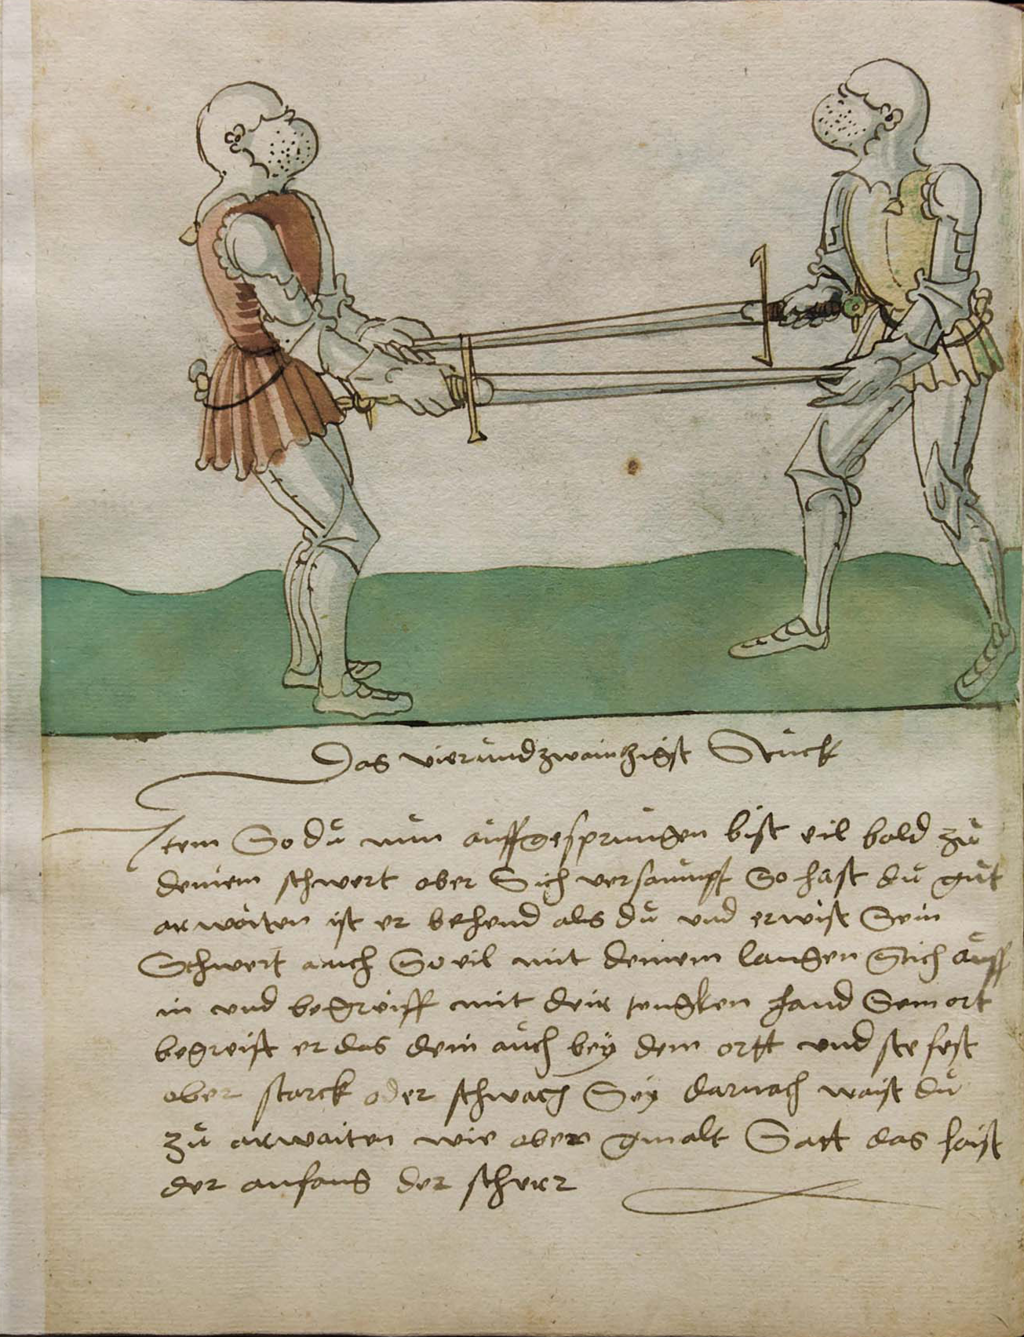 Das vierundzwainzigst Stuck
Item So du nun auffgesprungen bist eil bald zu
deinem schwert aber Sich versaumpt So hast du gut
arwaiten ist er behend als du und erwist Sein
Schwert auch So eil mit deinem langen Stich auff
in und begreiff mit deir lengken hand Sein ort
begreift er das dein auch bey dem ortt und ste fest
aber starck oder schwach Sey darnach waist du
zu arwaiten wie aber gmalt Satt das haist
der anfang der scherr